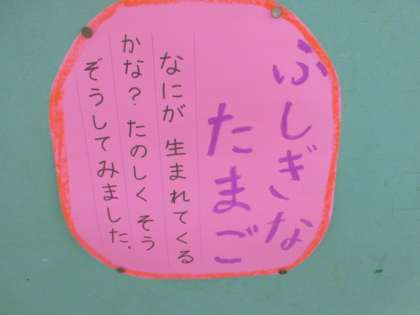 ふしぎな
たまご
なにが 生まれてくる
かな？たのしくそう
ぞうしてみました．